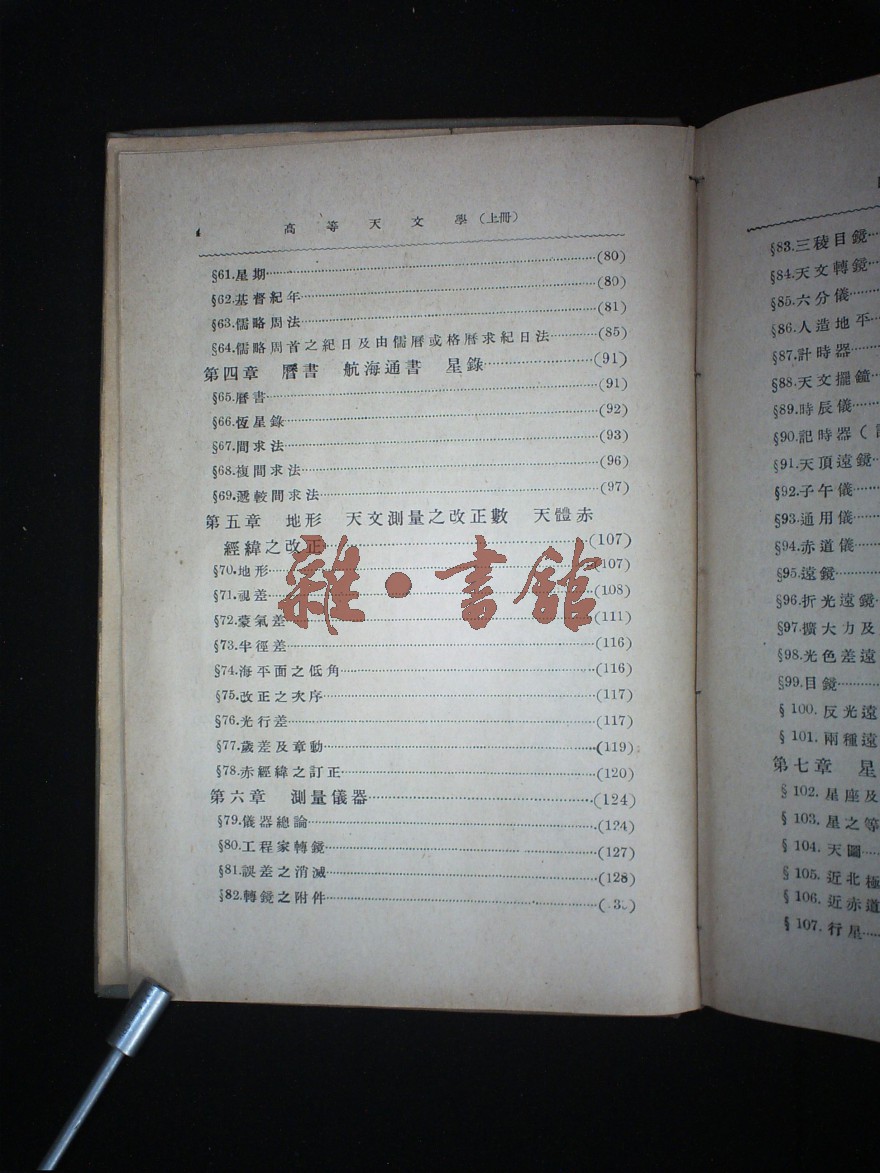 高等天文學（上冊）
§61.星期……(80)
§62.基督紀年……(80)
§63.儒略周法……(81)
§64.儒略周首之紀日及由儒曆或格曆求紀日法……(85)
第四章　曆書　航海通書　星錄……(91)
§65.曆書……(91)
§66.恆星錄……(92)
§67.間求法……(93)
§68.複間求法……(96)
§69.遞較間求法……(97)
第五章　地形　天文測量之改正數　天體赤
經緯之改正……(107)
§70.地形……(107)
§71.視差……(108)
§72.蒙氣差……(111)
§73.半徑差……(116)
§74.海平面之低角……(116)
§75.改正之次序……(117)
§76.光行差……(117)
§77.歲差及章動……(119)
§78.赤經緯之訂正……(120)
第六章　測量儀器……(124)
§79.儀器總論……(124)
§80.工程家轉鏡……(127)
§81.誤差之消滅……(128)
§82.轉鏡之附件……
雜·書館
§83.三稜目鏡…
§84.天文轉鏡…
§85.六分儀…
§86.人造地平…
§87.計時器…
§88.天文擺鐘…
§89.時辰儀…
§90.記時器（
§91.天頂遠鏡…
§92.子午儀…
§93.通用儀…
§94.赤道儀…
§95.遠鏡…
§96.折光遠鏡…
§97.擴大力及
§98.光色差遠
§99.目鏡…
§100.反光遠
§101.兩種遠
第七章　星
§102.星座及
§103.星之等
§104.天圖…
§105.近北極
§106.近赤道
§107.行星…